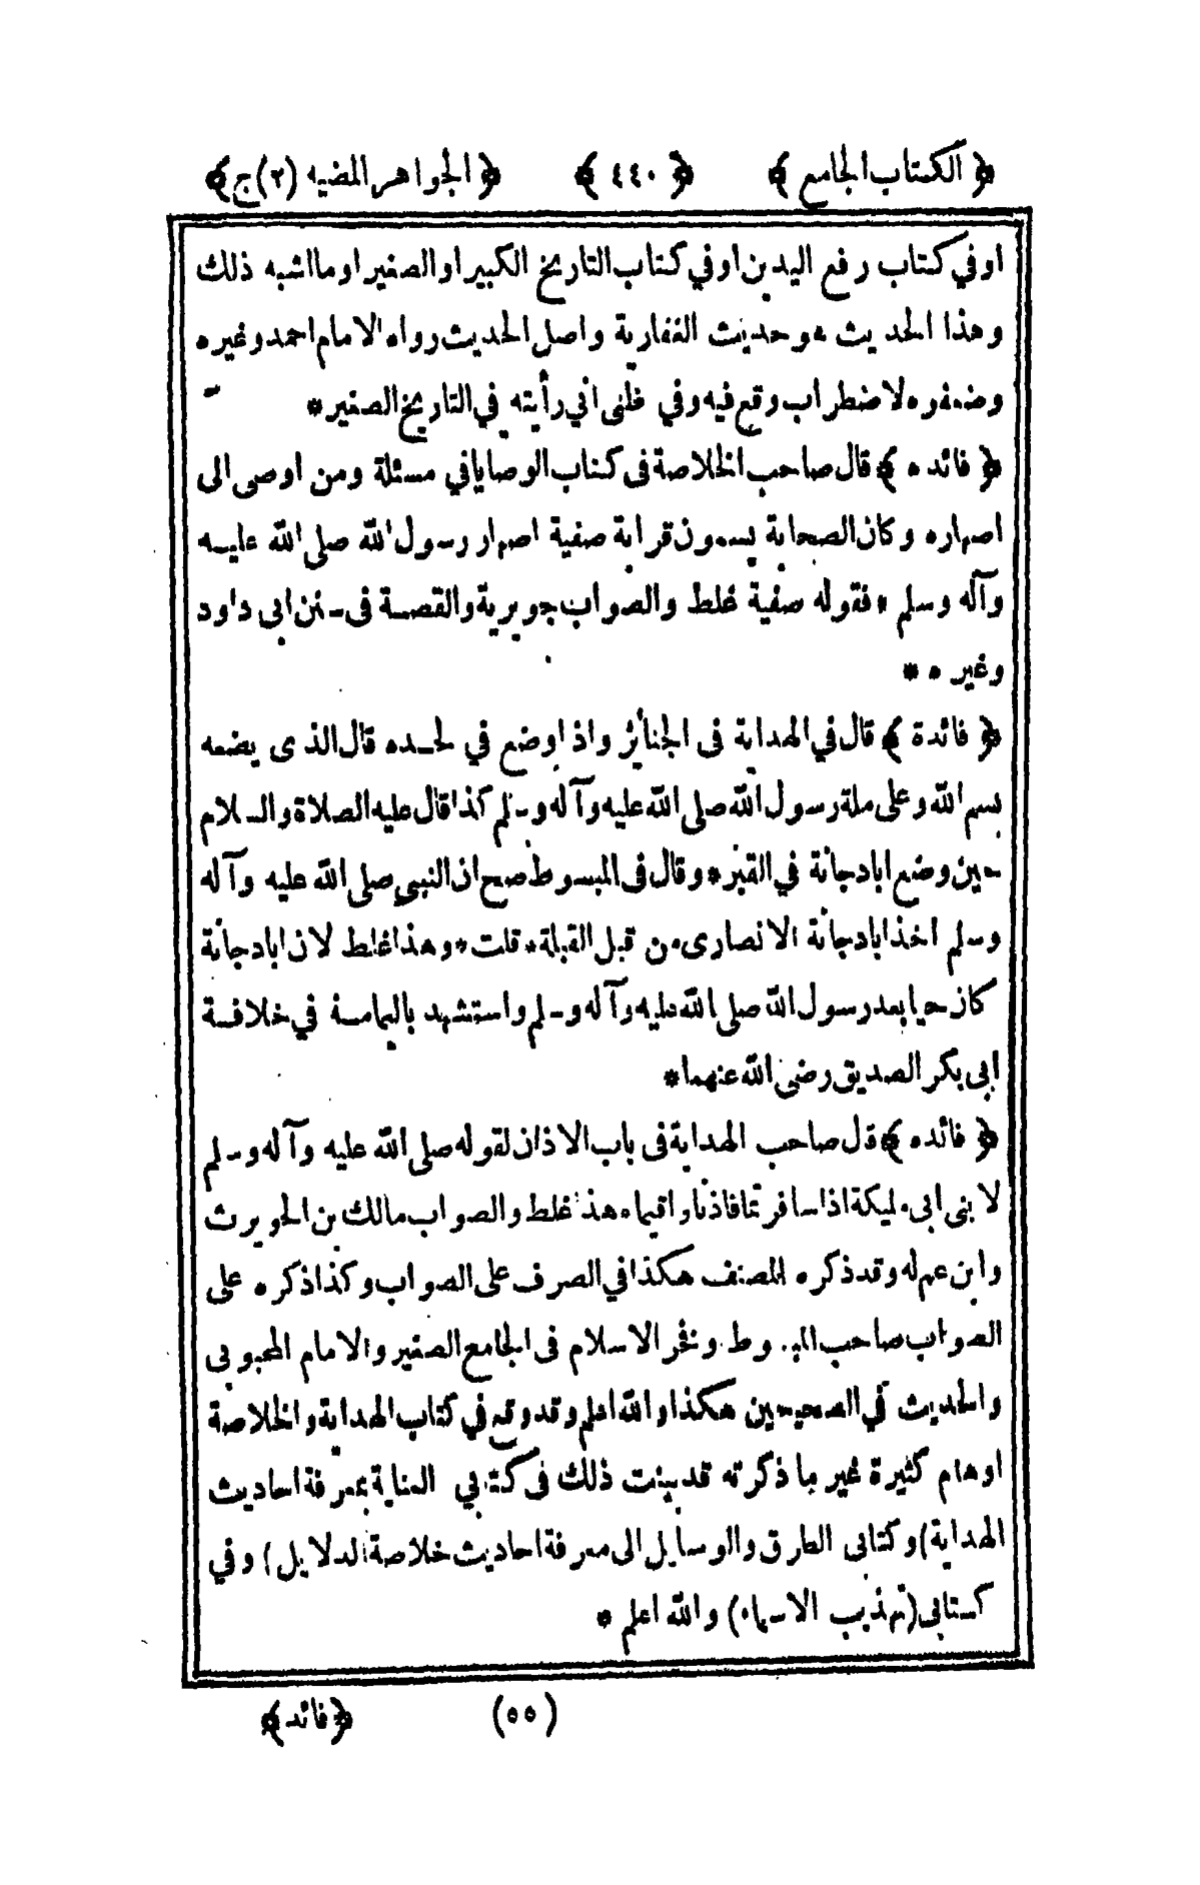 ﴿ الكتاب الجامع ﴾ ﴿ ٤٤٠ ﴾ ﴿ الجواهر المضيه (٢) ج ﴾
اوفي كتاب رفع اليدين اوفي كتاب التاريخ الكبير او الصغير اوما اشبه ذلك
وهذا الحديث هو حديث الغفارية واصل الحديث رواه الامام احمد وغيره
وضعفوه لاضطراب وقع فيه وفي ظنى اني رأيته في التاريخ الصغير *
﴿ فائده ﴾ قال صاحب الخلاصة فى كتاب الوصايا في مسئلة ومن اوصى الى
اصهاره وكان الصحابة يسمون قرابة صفية اصهار رسول الله صلى الله عليه
وآله وسلم * فقوله صفية غلط والصواب جويرية والقصة فى سنن ابى داود
وغيره *
﴿ فائدة ﴾ قال في الهداية فى الجنائز واذا وضع في لحده قال الذى يضعه
بسم الله وعلى ملة رسول الله صلى الله عليه وآله وسلم كذا قال عليه الصلاة والسلام
حين وضع ابا دجانة في القبر * وقال فى المبسوط صح ان النبي صلى الله عليه وآله
وسلم اخذ ابا دجانة الانصارى من قبل القبلة * قلت * وهذا غلط لان ابا دجانة
كان حيا بعد رسول الله صلى الله عليه وآله وسلم واستشهد باليمامة في خلافة
ابى بكر الصديق رضى الله عنهما *
﴿ فائده ﴾ قال صاحب الهداية فى باب الاذان لقوله صلى الله عليه وآله وسلم
لابنى ابى مليكة اذا سافرتما فاذنا واقيما * هذا غلط والصواب مالك بن الحويرث
وابن عم له وقد ذكره المصنف هكذا في الصرف على الصواب وكذا ذكره على
الصواب صاحب المبسوط وفخر الاسلام فى الجامع الصغير والامام المحبوبى
والحديث في الصحيحين هكذا والله اعلم وقد وقع في كتاب الهداية والخلاصة
اوهام كثيرة غير ما ذكرته قد بينت ذلك فى كتابي العناية بمعرفة احاديث
الهداية) وكتابى الطرق والوسايل الى معرفة احاديث خلاصة الدلايل) وفي
كتابى (تهذيب الاسماء) والله اعلم *
(٥٥) ﴿ فائد ﴾